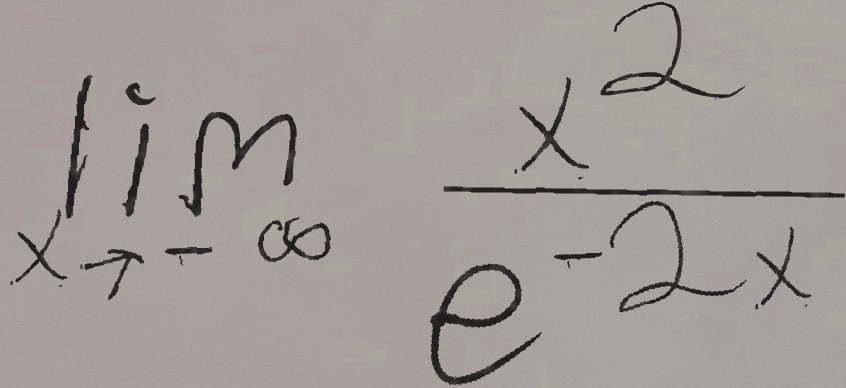 lim x→-∞ x^2/e^-2x